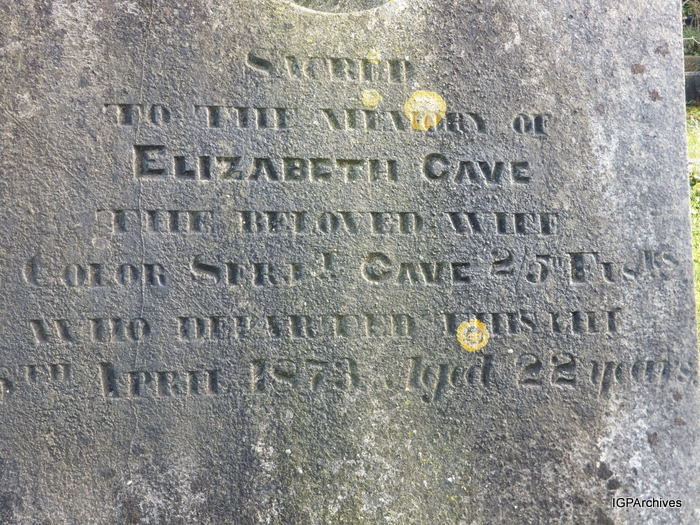 SACRED
TO THE MEMORY OF
ELIZABETH CAVE
THE BELOVED WIFE
COLOR SERJT CAVE 2/5TH FUSRS
WHO DEPARTED THIS LIFE
TH APRIL 1873 Aged 22 years
IGPArchives